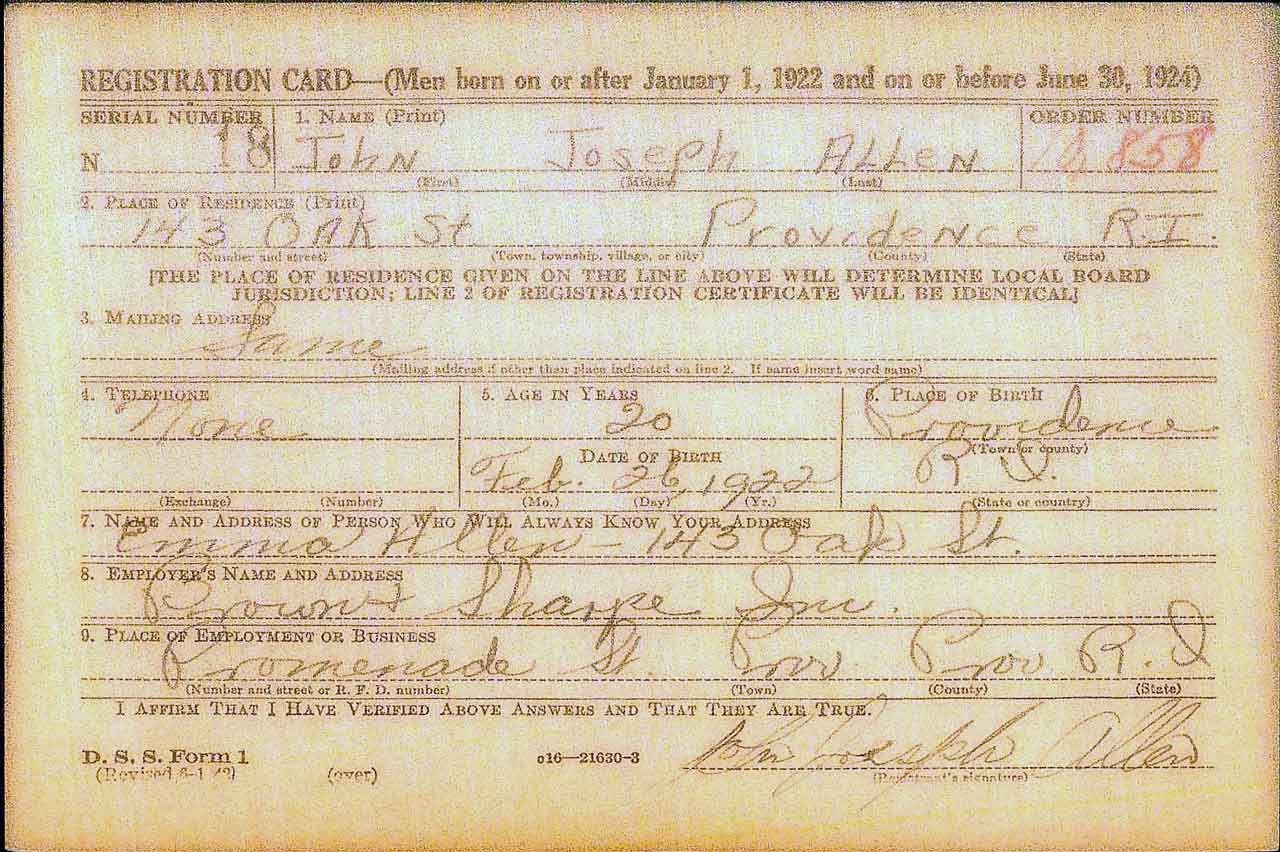 REGISTRATION CARD—(Men born on or after January 1, 1922 and on or before June 30, 1924)
SERIAL NUMBER 1. NAME (Print) ORDER NUMBER
N 18 John Joseph Allen 858
(First) (Middle) (Last)
2. PLACE OF RESIDENCE (Print)
143 OAK St. Providence R.I.
(Number and street) (Town, township, village, or city) (County) (State)
[THE PLACE OF RESIDENCE GIVEN ON THE LINE ABOVE WILL DETERMINE LOCAL BOARD
JURISDICTION; LINE 2 OF REGISTRATION CERTIFICATE WILL BE IDENTICAL]
3. MAILING ADDRESS
Same
(Mailing address if other than place indicated on line 2. If same insert word same)
4. TELEPHONE 5. AGE IN YEARS 6. PLACE OF BIRTH
None 20 Providence
DATE OF BIRTH (Town or county)
Feb. 26, 1922 R.I.
(Exchange) (Number) (Mo.) (Day) (Yr.) (State or country)
7. NAME AND ADDRESS OF PERSON WHO WILL ALWAYS KNOW YOUR ADDRESS
Emma Allen - 143 Oak St.
8. EMPLOYER'S NAME AND ADDRESS
Brown & Sharpe Inc.
9. PLACE OF EMPLOYMENT OR BUSINESS
Promenade St. Prov. Prov R.I
(Number and street or R. F. D. number) (Town) (County) (State)
I AFFIRM THAT I HAVE VERIFIED ABOVE ANSWERS AND THAT THEY ARE TRUE.
D. S. S. Form 1 o16—21630-3 John Joseph Allen
(Revised 6-1-42) (over) (Registrant's signature)